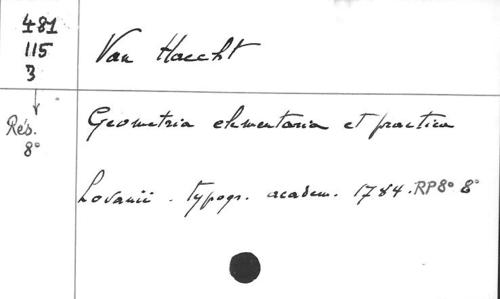 481
115
3
Van Haecht
Rés.
8°
Geometria elementaria et practica
Lovanii . typogr. academ. 1784. RP8° 8°